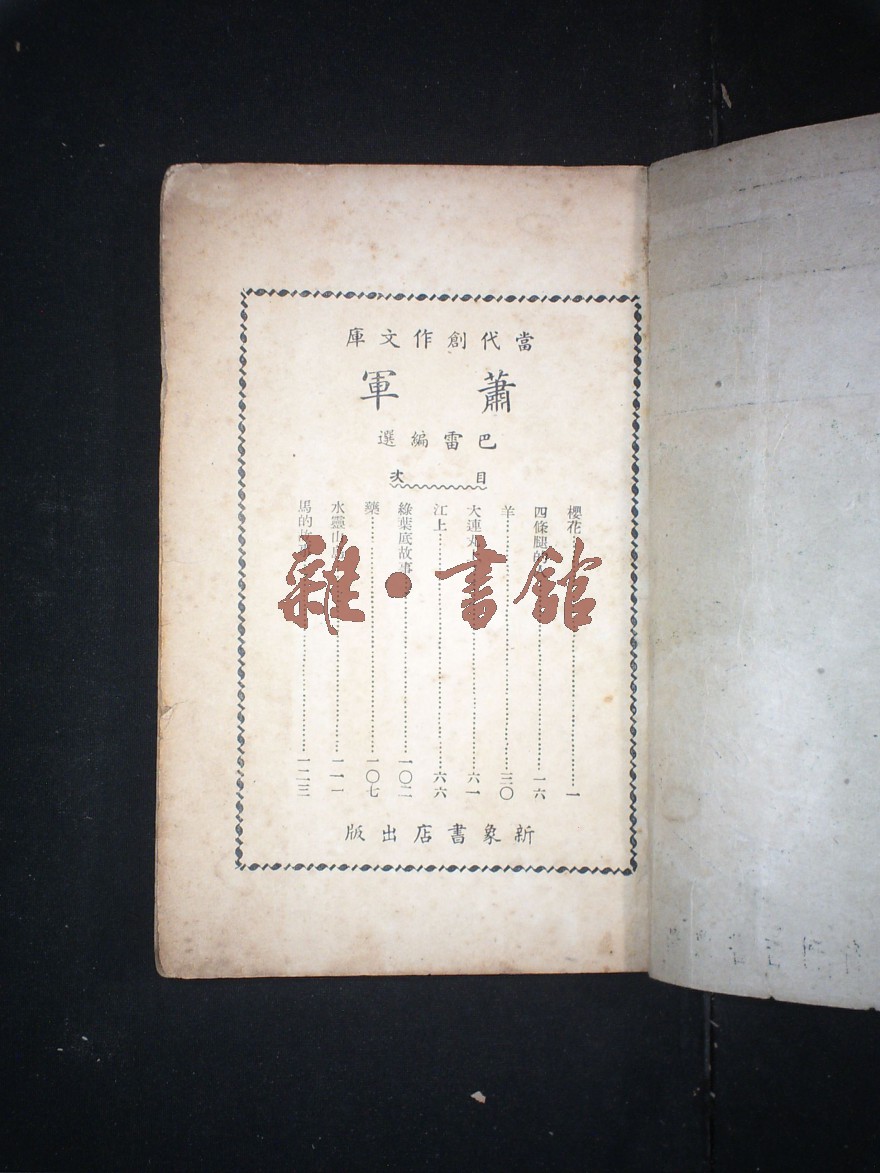 當代創作文庫
蕭軍
巴雷編選
目次
櫻花……一
四條腿的……一六
羊……三〇
大連丸上……六一
江上……六六
綠葉底故事……一〇二
藥……一〇七
水靈山島……一一一
馬的故事……一二三
新象書店出版
雜·書館